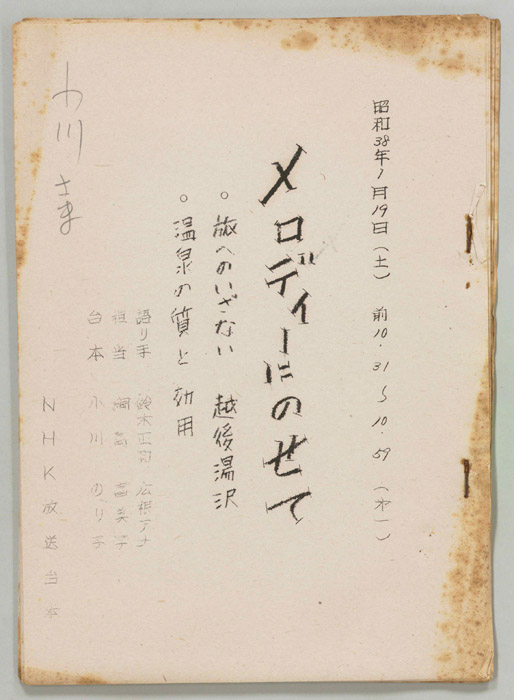 昭和38年1月19日(土) 前10.31~10.59 (オ一)
メロディーにのせて
。旅へのいざない 越後湯沢
。温泉の質と効用
語り手 鈴木正和 広根アナ
担当 富美子
台本 小川 のり子
NHK放送台本
小川 さま